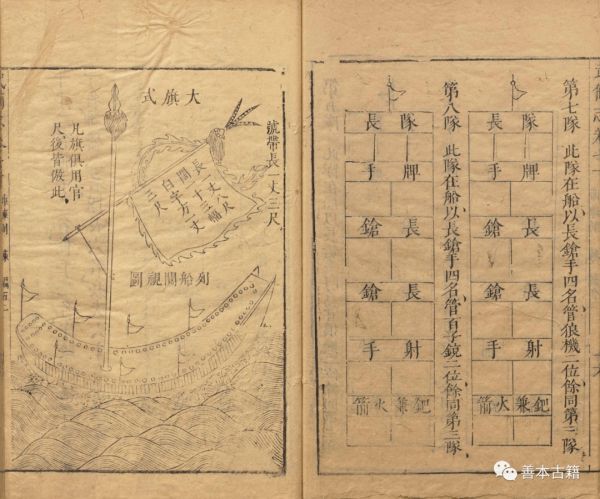 第七隊 此隊在船以長鎗手四名管狼機二位餘同第三隊
隊長
牌手
長鎗
長鎗
射手
鈀兼火箭
第八隊 此隊在船以長鎗手四名管百子銃二位餘同第三隊
隊長
牌手
長鎗
長鎗
射手
鈀兼火箭
號帶長一丈三尺
大旗式
長丈八尺
闊十二幅
白字方丈
三尺
凡旗俱用官
尺後皆倣此
列船闊視圖
善本古籍